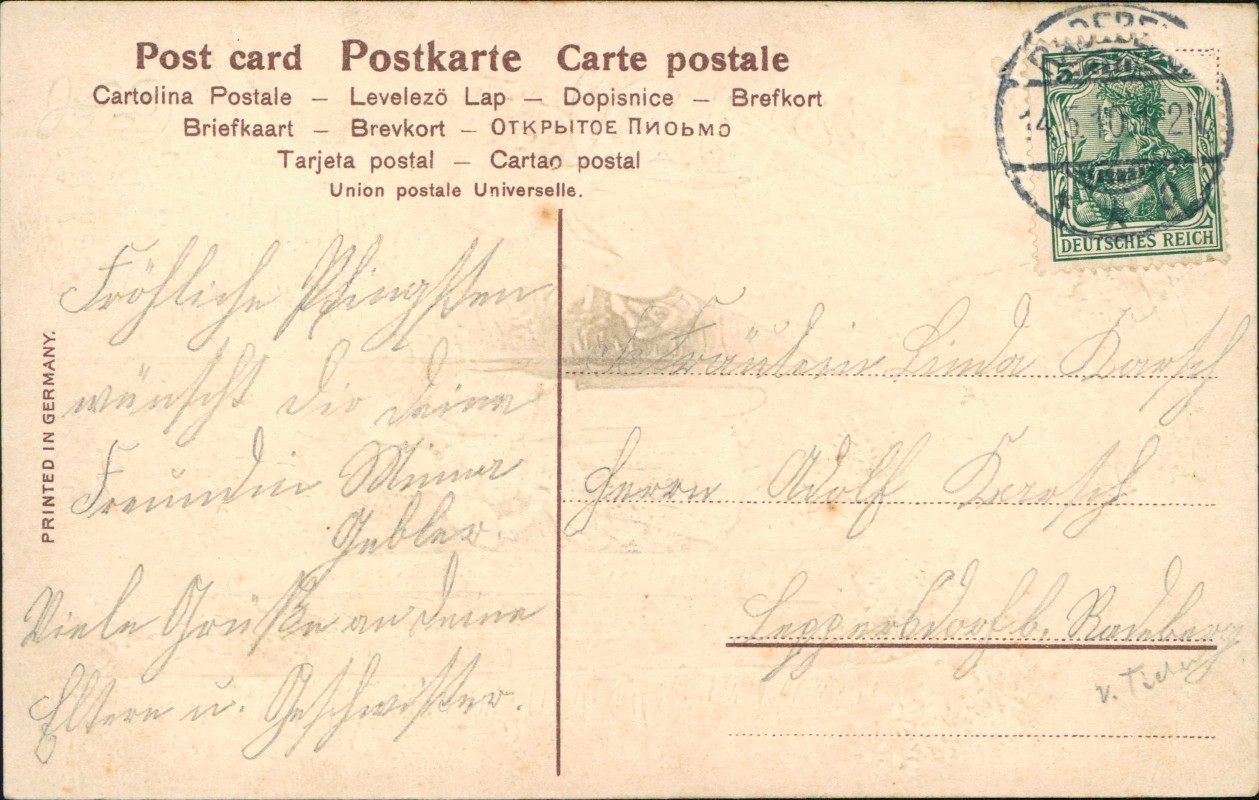 Post card Postkarte Carte postale
Cartolina Postale – Levelezö Lap – Dopisnice – Brefkort
Briefkaart – Brevkort – ОТКРЫТОЕ ПИОЬМО
Tarjeta postal – Cartao postal
Union postale Universelle.
PRINTED IN GERMANY.
5
14.5.10. 2N
DEUTSCHES REICH
Fröhliche Pfingsten
wünscht dir deine
Freundin Minna
Gebler.
Viele Grüße an deine
Eltern u. Geschwister.
Fräulein Linda Karsch
Herrn Adolf Karsch
Leppersdorf b. Radeberg